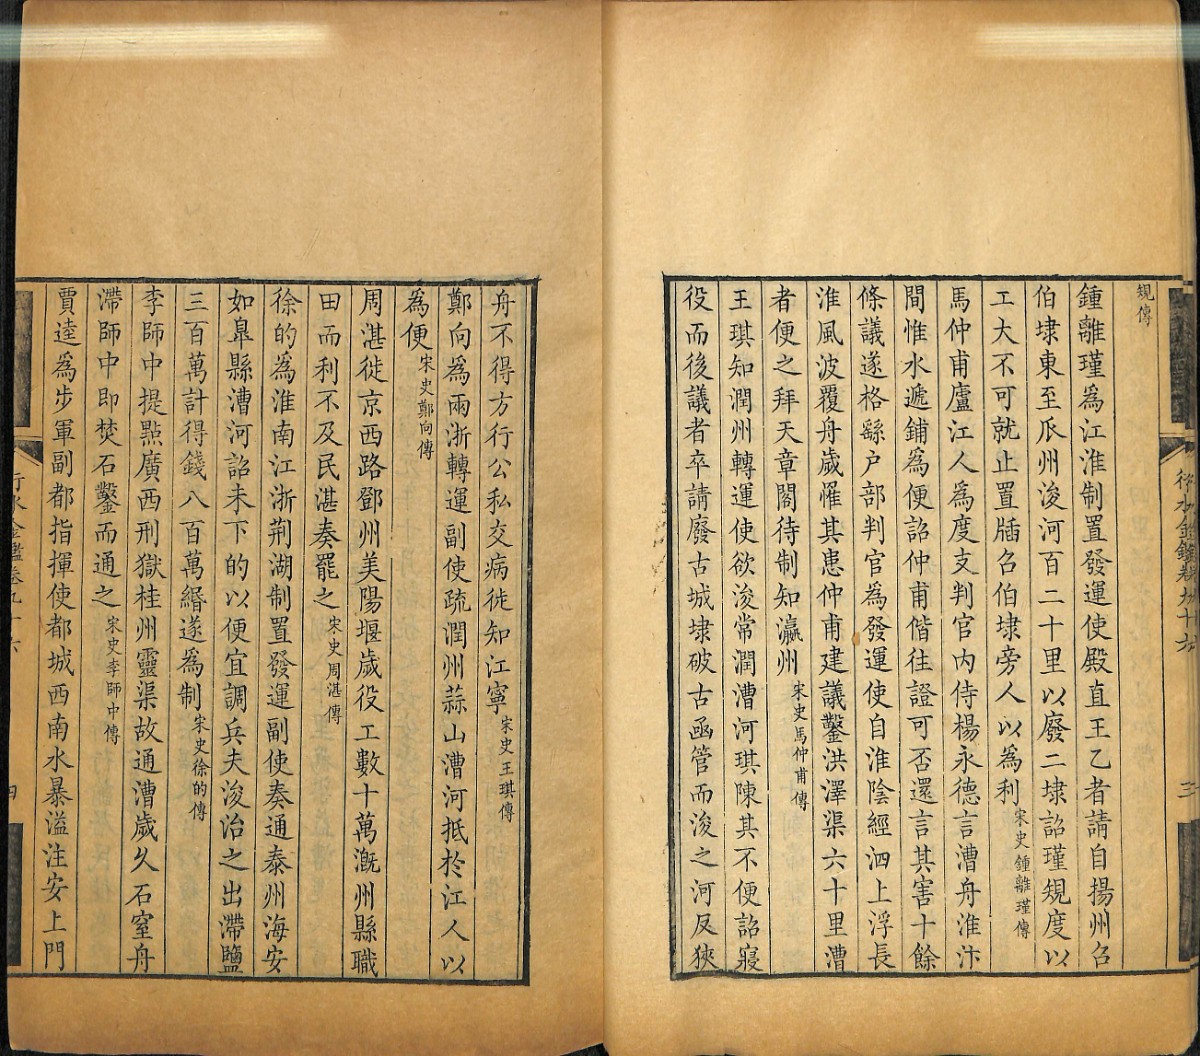 規傳
鍾離瑾爲江淮制置發運使殿直王乙者請自揚州召
伯埭東至瓜州浚河百二十里以廢二埭詔瑾規度以
工大不可就止置牐召伯埭旁人以為利宋史鍾離瑾傳
馬仲甫廬江人爲度支判官内侍楊永德言漕舟淮汴
間惟水遞鋪為便詔仲甫偕往證可否還言其害十餘
條議遂格繇户部判官為發運使自淮陰經泗上浮長
淮風波覆舟歲罹其患仲甫建議鑿洪澤渠六十里漕
者便之拜天章閣待制知瀛州宋史馬仲甫傳
王琪知潤州轉運使欲浚常潤漕河琪陳其不便詔寢
役而後議者卒請廢古城埭破古函管而浚之河反狹
舟不得方行公私交病徙知江寧宋史王琪傳
鄭向為兩浙轉運副使疏潤州蒜山漕河抵於江人以
為便宋史鄭向傳
周湛徙京西路鄧州美陽堰歲役工數十萬溉州縣職
田而利不及民湛奏罷之宋史周湛傳
徐的為淮南江浙荆湖制置發運副使奏通泰州海安
如臯縣漕河詔未下的以便宜調兵夫浚治之出滯鹽
三百萬計得錢八百萬緡遂爲制宋史徐的傳
李師中提㸃廣西刑獄桂州靈渠故通漕歲久石窒舟
滯師中即焚石鑿而通之宋史李師中傳
賈逵爲步軍副都指揮使都城西南水暴溢注安上門
行水金鑑卷九十六
四